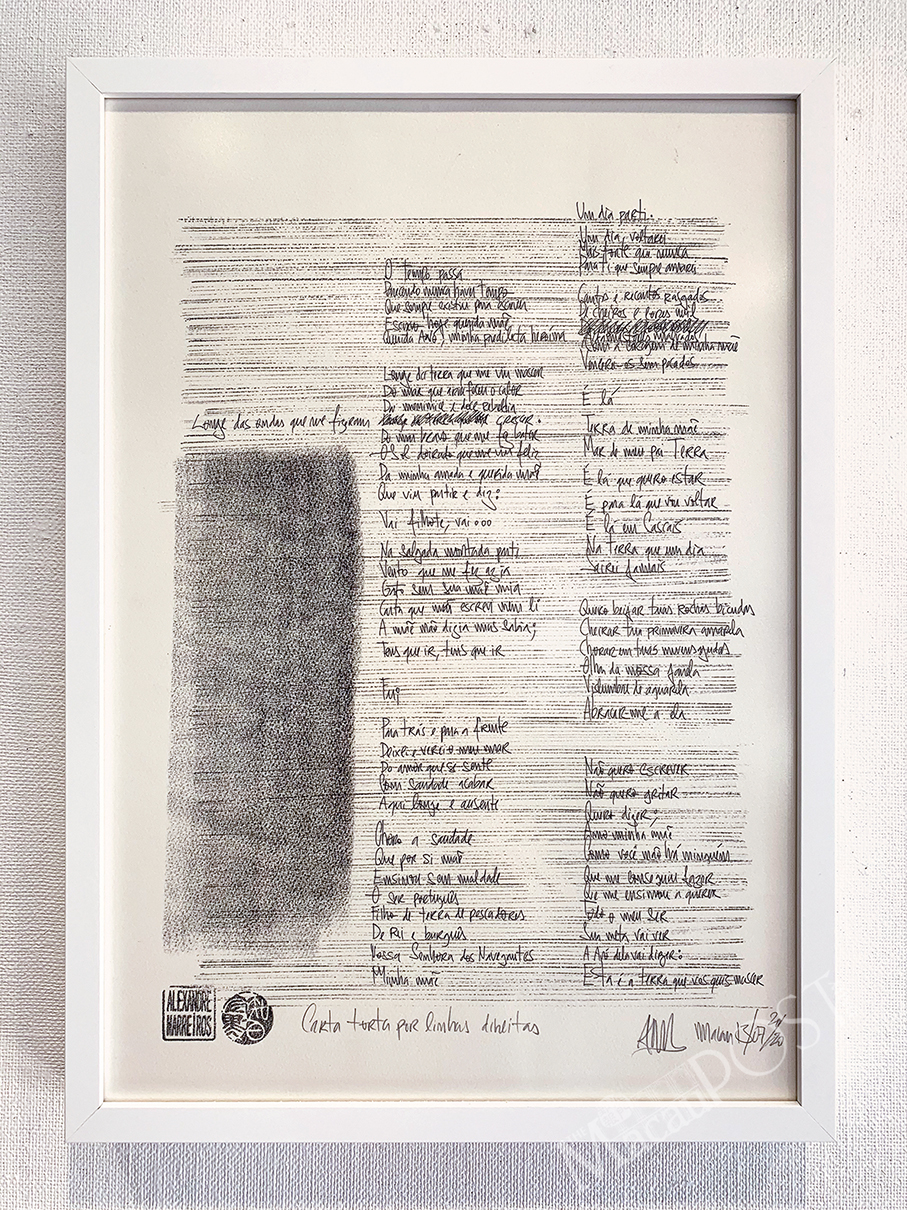 O tempo passa
Parecendo nunca haver Tempo
Que sempre existiu para escrever
Escrevo hoje querida mãe
Querida Avó, minha predilecta heroína
Longe da terra que me viu nascer
Do mar que
Da maresia e doce rebeldia
Longe das ondas que me fizeram crescer.
Do que me faz bater
O Sol doirado que me viu feliz
Da minha amada e querida mãe
Que viu partir e diz:
Vai filhote, vai...
Na salgada montada parti
Vento que me fez azia
Gato sem sua mãe mia
Carta que não escrevi nem li
A mãe não dizia mas sabia;
Tens que ir, tens que ir
Fui
Para trás e para a frente
Deixei e verei o meu mar
Do amor que se sente
Com saudade acabar
Aqui longe e ausente
Choro a saudade
Que por si mãe
Ensinou sem maldade
O ser português
Filho de terra de pescadores
De Rei e burguês
Nossa Senhora dos Navegantes
Minha mãe
Um dia parti.
Um dia, voltarei
Mais forte que nunca
Para ti que sempre amarei
Cantos e recantos rasgados
De cheiros e cores mil
Como a coragem de minha mãe
Vencero-os sem pecados
É lá
Terra de minha mãe
Mar de meu pai Terra
É lá que quero estar
É para lá que vou voltar
É lá em Cascais
Na Terra que um dia
Sairei jamais
Quero beijar tuas rochas bicudas
Cheirar tua primavera amarela
Chorar em tuas nuvens
Olhar da nossa janela
Vislumbre de aguarela
Abraçar-me a ela
Não quero escrever
Não quero gritar
Quero dizer;
Amo minha mãe
Como você não há ninguém
Que me conseguiu fazer
Que me ensinou a querer
Todo o meu Ser
Sua neta vai ver
A Avó dela vai dizer:
Esta é a terra que vos quis nascer
ALEXANDRE
MARREIROS
Carta torta por linhas direitas
Macau 13/07/20
MacauPOST